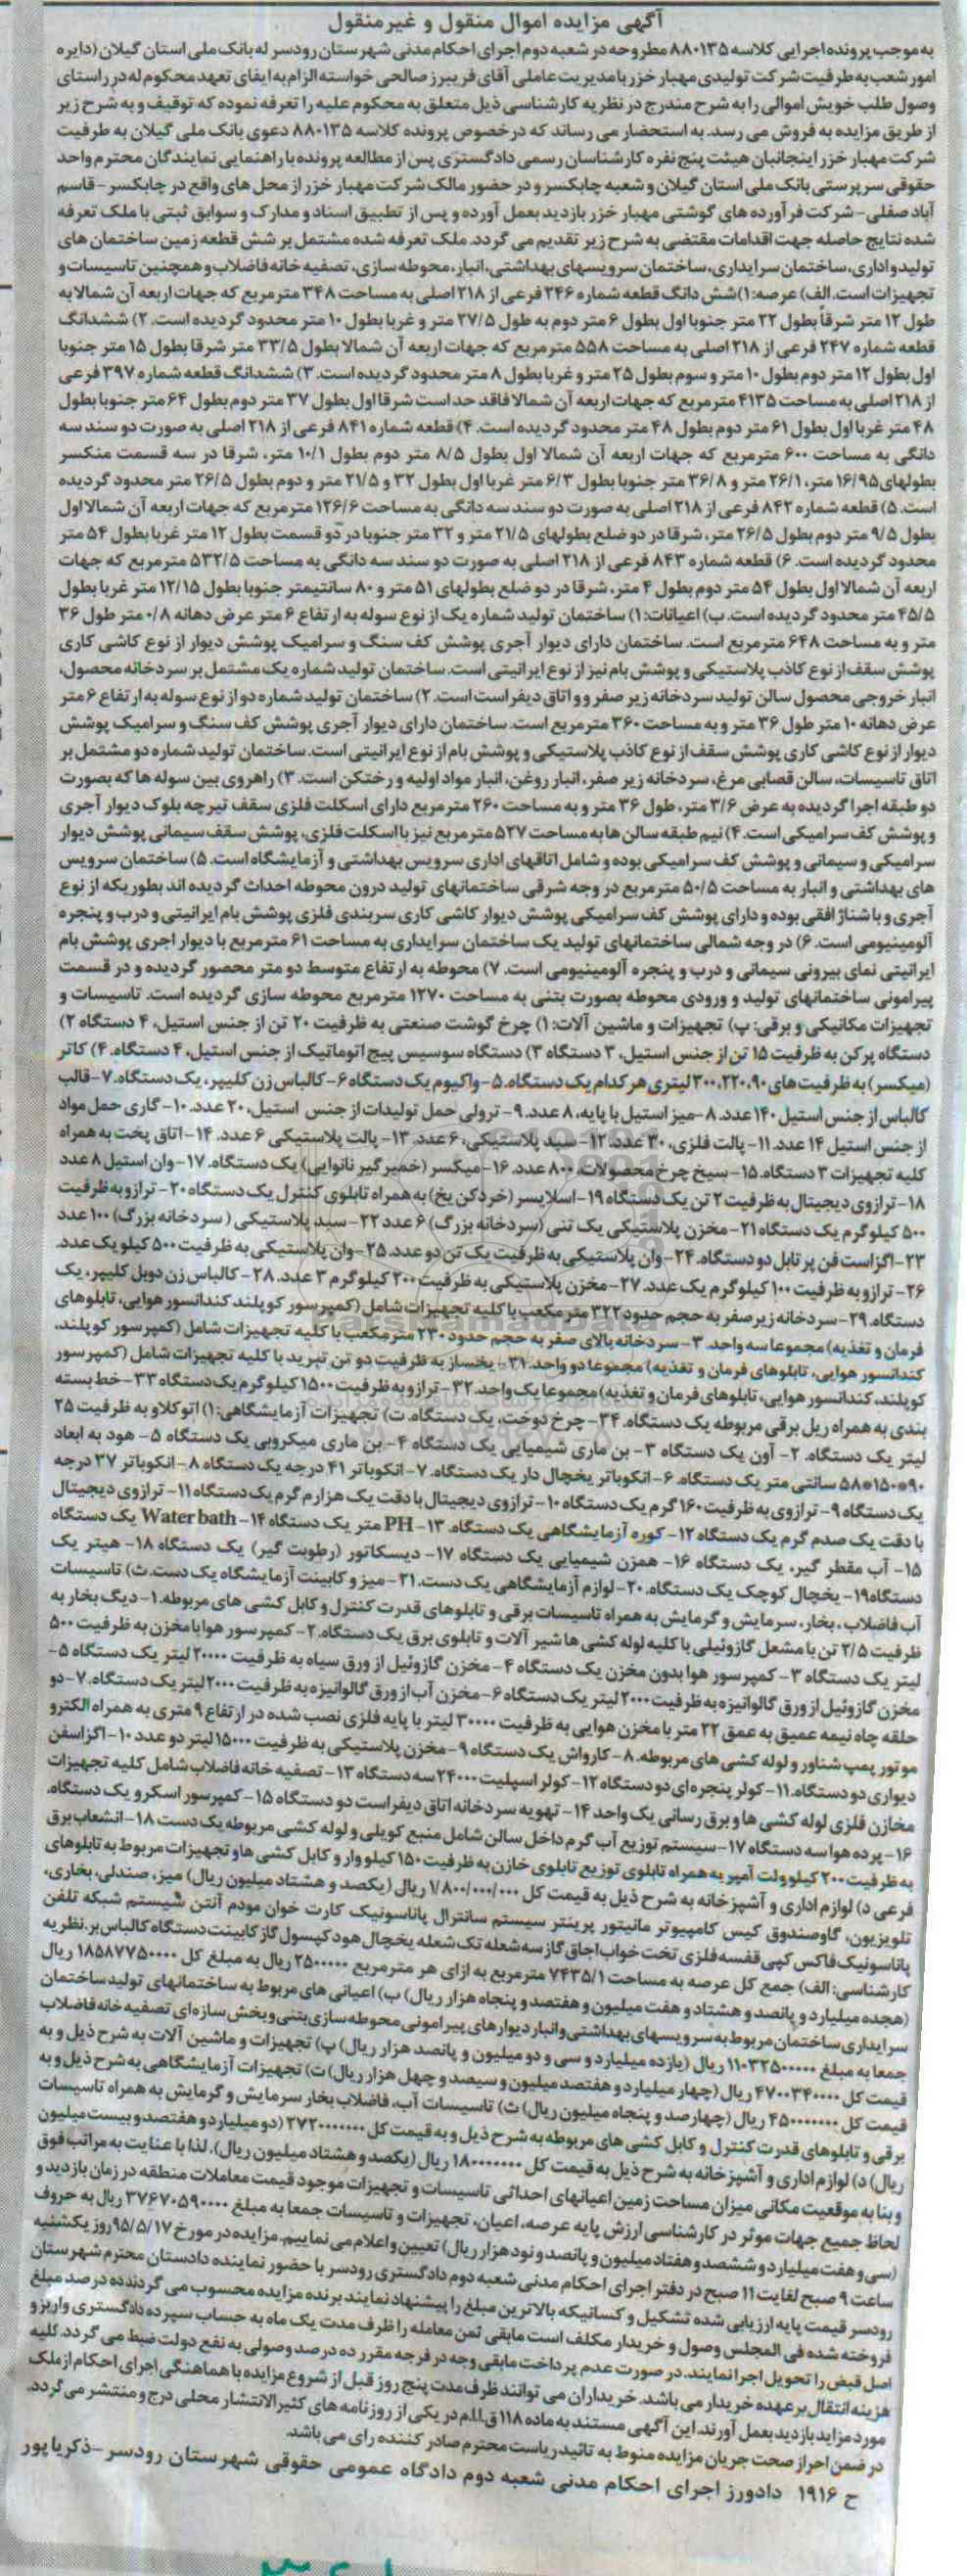 آگهی مزایده اموال منقول و غیرمنقول
به موجب پرونده اجرایی کلاسه ۸۸۰۱۳۵ مطروحه در شعبه دوم اجرای احکام مدنی شهرستان رودسر له بانک ملی استان گیلان (دایره
امور شعب به طرفیت شرکت تولیدی مهیار خزر با مدیریت عاملی آقای فریبرز صالحی خواسته الزام به ایفای تعهد محکوم له در راستای
وصول طلب خویش اموالی را به شرح مندرج در نظریه کارشناسی ذیل متعلق به محکوم علیه را تعرفه نموده که توقیف و به شرح زیر
از طریق مزایده به فروش می رسد. به استحضار می رساند که در خصوص پرونده کلاسه ۸۸۰۱۳۵ دعوی بانک ملی گیلان به طرفیت
شرکت مهیار خزر اینجانبان هیئت پنج نفره کارشناسان رسمی دادگستری پس از مطالعه پرونده با راهنمایی نمایندگان محترم واحد
حقوقی سرپرستی بانک ملی استان گیلان و شعبه چابکسر و در حضور مالک شرکت مهیار خزر از محل های واقع در چابکسر - قاسم
آباد صفلی - شرکت فرآورده های گوشتی مهیار خزر بازدید بعمل آورده و پس از تطبیق اسناد و مدارک و سوابق ثبتی با ملک تعرفه
شده نتایج حاصله جهت اقدامات مقتضی به شرح زیر تقدیم می گردد. ملک تعرفه شده مشتمل بر شش قطعه زمین ساختمان های
تولید و اداری، ساختمان سرایداری، ساختمان سرویسهای بهداشتی، انبار، محوطه سازی، تصفیه خانه فاضلاب و همچنین تاسیسات و
تجهیزات است. الف) عرصه: ۱) شش دانگ قطعه شماره ۲۴۶ فرعی از ۲۱۸ اصلی به مساحت ۳۴۸ مترمربع که جهات اربعه آن شمالا به
طول ۱۲ متر شرقا بطول ۲۲ متر جنوبا اول بطول ۶ متر دوم به طول ۲۷/۵ متر و غربا بطول ۱۰ متر محدود گردیده است. ۲) ششدانگ
قطعه شماره ۲۴۷ فرعی از ۲۱۸ اصلی به مساحت ۵۵۸ مترمربع که جهات اربعه آن شمالا بطول ۳۳/۵ متر شرقا بطول ۱۵ متر جنوبا
اول بطول ۱۲ متر دوم بطول ۱۰ متر و سوم بطول ۲۵ متر و غربا بطول ۸ متر محدود گردیده است. ۳) ششدانگ قطعه شماره ۳۹۷ فرعی
از ۲۱۸ اصلی به مساحت ۴۱۳۵ مترمربع که جهات اربعه آن شمالا فاقد حد است شرقا اول بطول ۳۷ متر دوم بطول ۶۴ متر جنوبا بطول
۴۸ متر غربا اول بطول ۶۱ متر دوم بطول ۴۸ متر محدود گردیده است. ۴) قطعه شماره ۸۴۱ فرعی از ۲۱۸ اصلی به صورت دو سند سه
دانگی به مساحت ۶۰۰ مترمربع که جهات اربعه آن شمالا اول بطول ۸/۵ متر دوم بطول ۱۰/۱ متر، شرقا در سه قسمت منکسر
بطولهای ۱۶/۹۵ متر، ۲۶/۱ متر و ۳۶/۸ متر جنوبا بطول ۶/۳ متر غربا اول بطول ۳۲ و ۲۱/۵ متر و دوم بطول ۲۶/۵ متر محدود گردیده
است. ۵) قطعه شماره ۸۴۲ فرعی از ۲۱۸ اصلی به صورت دو سند سه دانگی به مساحت ۱۲۶/۶ مترمربع که جهات اربعه آن شمالا اول
بطول ۹/۵ متر دوم بطول ۲۶/۵ متر، شرقا در دو ضلع بطولهای ۲۱/۵ متر و ۳۲ متر جنوبا در دو قسمت بطول ۱۲ متر غربا بطول ۵۴ متر
محدود گردیده است. ۶) قطعه شماره ۸۴۳ فرعی از ۲۱۸ اصلی به صورت دو سند سه دانگی به مساحت ۵۳۲/۵ مترمربع که جهات
اربعه آن شمالا اول بطول ۵۴ متر دوم بطول ۴ متر، شرقا در دو ضلع بطولهای ۵۱ متر و ۸۰ سانتیمتر جنوبا بطول ۱۲/۱۵ متر غربا بطول
۴۵/۵ متر محدود گردیده است. ب) اعیانات: ۱) ساختمان تولید شماره یک از نوع سوله به ارتفاع ۶ متر عرض دهانه ۰/۸ متر طول ۳۶
متر و به مساحت ۶۴۸ مترمربع است. ساختمان دارای دیوار آجری پوشش کف سنگ و سرامیک پوشش دیوار از نوع کاشی کاری
پوشش سقف از نوع کاذب پلاستیکی و پوشش بام نیز از نوع ایرانیتی است. ساختمان تولید شماره یک مشتمل بر سردخانه محصول،
انبار خروجی محصول سالن تولید سردخانه زیر صفر و و اتاق دیفراست است. ۲) ساختمان تولید شماره دو از نوع سوله به ارتفاع ۶ متر
عرض دهانه ۱۰ متر طول ۳۶ متر و به مساحت ۳۶۰ مترمربع است. ساختمان دارای دیوار آجری پوشش کف سنگ و سرامیک پوشش
دیوار از نوع کاشی کاری پوشش سقف از نوع کاذب پلاستیکی و پوشش بام از نوع ایرانیتی است. ساختمان تولید شماره دو مشتمل بر
اتاق تاسیسات، سالن قصابی مرغ، سردخانه زیر صفر، انبار روغن، انبار مواد اولیه و رختکن است. ۳) راهروی بین سوله ها که بصورت
دو طبقه اجرا گردیده به عرض ۳/۶ متر، طول ۳۶ متر و به مساحت ۲۶۰ مترمربع دارای اسکلت فلزی سقف تیرچه بلوک دیوار آجری
و پوشش کف سرامیکی است. ۴) نیم طبقه سالن ها به مساحت ۵۲۷ مترمربع نیز با اسکلت فلزی، پوشش سقف سیمانی پوشش دیوار
سرامیکی و سیمانی و پوشش کف سرامیکی بوده و شامل اتاقهای اداری سرویس بهداشتی و آزمایشگاه است. ۵) ساختمان سرویس
های بهداشتی و انبار به مساحت ۵۰/۵ مترمربع در وجه شرقی ساختمانهای تولید درون محوطه احداث گردیده اند بطوریکه از نوع
آجری و با شناژ افقی بوده و دارای پوشش کف سرامیکی پوشش دیوار کاشی کاری سربندی فلزی پوشش بام ایرانیتی و درب و پنجره
آلومینیومی است. ۶) در وجه شمالی ساختمانهای تولید یک ساختمان سرایداری به مساحت ۶۱ مترمربع با دیوار اجری پوشش بام
ایرانیتی نمای بیرونی سیمانی و درب و پنجره آلومینیومی است. ۷) محوطه به ارتفاع متوسط دو متر محصور گردیده و در قسمت
پیرامونی ساختمانهای تولید و ورودی محوطه بصورت بتنی به مساحت ۱۲۷۰ مترمربع محوطه سازی گردیده است. تاسیسات و
تجهیزات مکانیکی و برقی: پ) تجهیزات و ماشین آلات: ۱) چرخ گوشت صنعتی به ظرفیت ۲۰ تن از جنس استیل، ۴ دستگاه ۲)
دستگاه پرکن به ظرفیت ۱۵ تن از جنس استیل، ۳ دستگاه ۳) دستگاه سوسیس پیچ اتوماتیک از جنس استیل، ۴ دستگاه. ۴) کاتر
(میکسر) به ظرفیت های ۹۰، ۲۲۰، ۳۰۰ لیتری هر کدام یک دستگاه. ۵- واکیوم یک دستگاه ۶- کالباس زن کلیپر، یک دستگاه. ۷- قالب
کالباس از جنس استیل ۱۴۰ عدد. ۸- میز استیل با پایه، ۸ عدد. ۹- ترولی حمل تولیدات از جنس استیل، ۲۰ عدد. ۱۰- گاری حمل مواد
از جنس استیل ۱۴ عدد. ۱۱- پالت فلزی، ۳۰ عدد. ۱۲- سبد پلاستیکی، ۶ عدد. ۱۳- پالت پلاستیکی ۶ عدد. ۱۴- اتاق پخت به همراه
کلیه تجهیزات ۳ دستگاه. ۱۵- سیخ چرخ محصولات، ۸۰۰ عدد. ۱۶- میکسر (خمیرگیر نانوایی) یک دستگاه. ۱۷- وان استیل ۸ عدد
۱۸- ترازوی دیجیتال به ظرفیت ۲ تن یک دستگاه ۱۹- اسلایسر (خردکن یخ) به همراه تابلوی کنترل یک دستگاه ۲۰- ترازو به ظرفیت
۵۰۰ کیلوگرم یک دستگاه ۲۱- مخزن پلاستیکی یک تنی (سردخانه بزرگ) ۶ عدد ۲۲- سبد پلاستیکی (سردخانه بزرگ) ۱۰۰ عدد
۲۳- اگزاست فن پرتابل دو دستگاه. ۲۴- وان پلاستیکی به ظرفیت یک تن دو عدد. ۲۵- وان پلاستیکی به ظرفیت ۵۰۰ کیلو یک عدد.
۲۶- ترازو به ظرفیت ۱۰۰ کیلوگرم یک عدد. ۲۷- مخزن پلاستیکی به ظرفیت ۲۰۰ کیلوگرم ۳ عدد. ۲۸- کالباس زن دوبل کلیپر، یک
دستگاه. ۲۹- سردخانه زیر صفر به حجم حدود ۳۲۲ مترمکعب با کلیه تجهیزات شامل (کمپرسور کوپلند کندانسور هوایی، تابلوهای
فرمان و تغذیه) مجموعا سه واحد. ۳۰- سردخانه بالای صفر به حجم حدود ۲۳۰ مترمکعب با کلیه تجهیزات شامل (کمپرسور کوپلند،
کندانسور هوایی، تابلوهای فرمان و تغذیه) مجموعا دو واحد. ۳۱- یخساز به ظرفیت دو تن تبرید با کلیه تجهیزات شامل (کمپرسور
کوپلند، کندانسور هوایی، تابلوهای فرمان و تغذیه) مجموعا یک واحد. ۳۲- ترازو به ظرفیت ۱۵۰۰ کیلوگرم یک دستگاه ۳۳- خط بسته
بندی به همراه ریل برقی مربوطه یک دستگاه. ۳۴- چرخ دوخت، یک دستگاه. ت) تجهیزات آزمایشگاهی: ۱) اتوکلاو به ظرفیت ۲۵
لیتر یک دستگاه. ۲- آون یک دستگاه ۳- بن ماری شیمیایی یک دستگاه ۴- بن ماری میکروبی یک دستگاه ۵- هود به ابعاد
۹۰*۱۵۰*۵۸ سانتی متر یک دستگاه. ۶- انکوباتر یخچال دار یک دستگاه. ۷- انکوباتر ۴۱ درجه یک دستگاه ۸- انکوباتر ۳۷ درجه
یک دستگاه ۹- ترازوی به ظرفیت ۱۶۰ گرم یک دستگاه ۱۰- ترازوی دیجیتال با دقت یک هزارم گرم یک دستگاه ۱۱- ترازوی دیجیتال
با دقت یک صدم گرم یک دستگاه ۱۲- کوره آزمایشگاهی یک دستگاه. ۱۳- PH متر یک دستگاه ۱۴- Water bath یک دستگاه
۱۵- آب مقطر گیر، یک دستگاه ۱۶- همزن شیمیایی یک دستگاه ۱۷- دیسکاتور (رطوبت گیر) یک دستگاه ۱۸- هیتر یک
دستگاه ۱۹- یخچال کوچک یک دستگاه. ۲۰- لوازم آزمایشگاهی یک دست. ۲۱- میز و کابینت آزمایشگاه یک دست. ث) تاسیسات
آب فاضلاب، بخار، سرمایش و گرمایش به همراه تاسیسات برقی و تابلوهای قدرت کنترل و کابل کشی های مربوطه. ۱- دیگ بخار به
ظرفیت ۲/۵ تن با مشعل گازوئیلی با کلیه لوله کشی ها شیر آلات و تابلوی برق یک دستگاه. ۲- کمپرسور هوا با مخزن به ظرفیت ۵۰۰
لیتر یک دستگاه ۳- کمپرسور هوا بدون مخزن یک دستگاه ۴- مخزن گازوئیل از ورق سیاه به ظرفیت ۲۰۰۰۰ لیتر یک دستگاه ۵-
مخزن گازوئیل از ورق گالوانیزه به ظرفیت ۲۰۰۰ لیتر یک دستگاه ۶- مخزن آب از ورق گالوانیزه به ظرفیت ۲۰۰۰ لیتر یک دستگاه. ۷- دو
حلقه چاه نیمه عمیق به عمق ۲۲ متر با مخزن هوایی به ظرفیت ۳۰۰۰۰ لیتر با پایه فلزی نصب شده در ارتفاع ۹ متری به همراه الکترو
موتور پمپ شناور و لوله کشی های مربوطه. ۸- کارواش یک دستگاه ۹- مخزن پلاستیکی به ظرفیت ۱۵۰۰۰ لیتر دو عدد ۱۰- اگزاسفن
دیواری دو دستگاه. ۱۱- کولر پنجره ای دو دستگاه ۱۲- کولر اسپلیت ۲۴۰۰۰ سه دستگاه ۱۳- تصفیه خانه فاضلاب شامل کلیه تجهیزات
مخازن فلزی لوله کشی ها و برق رسانی یک واحد ۱۴- تهویه سردخانه اتاق دیفراست دو دستگاه ۱۵- کمپرسور اسکرو یک دستگاه.
۱۶- پرده هوا سه دستگاه ۱۷- سیستم توزیع آب گرم داخل سالن شامل منبع کویلی و لوله کشی مربوطه یک دست ۱۸- انشعاب برق
به ظرفیت ۲۰۰ کیلوولت آمپر به همراه تابلوی توزیع تابلوی خازن به ظرفیت ۱۵۰ کیلو وار و کابل کشی ها و تجهیزات مربوط به تابلوهای
فرعی د) لوازم اداری و آشپزخانه به شرح ذیل به قیمت کل ۱/۸۰۰/۰۰۰/۰۰۰ ریال (یکصد و هشتاد میلیون ریال) میز، صندلی، بخاری،
تلویزیون، گاوصندوق کیس کامپیوتر مانیتور پرینتر سیستم سانترال پاناسونیک کارت خوان مودم آنتن سیستم شبکه تلفن
پاناسونیک فاکس کپی قفسه فلزی تخت خواب اجاق گاز سه شعله تک شعله یخچال هود کپسول گاز کابینت دستگاه کالباس بر. نظریه
کارشناسی: الف) جمع کل عرصه به مساحت ۷۴۳۵/۱ مترمربع به ازای هر مترمربع ۲۵۰۰۰۰۰ ریال به مبلغ کل ۱۸۵۸۷۷۵۰۰۰۰ ریال
(هجده میلیارد و پانصد و هشتاد و هفت میلیون و هفتصد و پنجاه هزار ریال) ب) اعیانی های مربوط به ساختمانهای تولید ساختمان
سرایداری ساختمان مربوط به سرویسهای بهداشتی و انبار دیوارهای پیرامونی محوطه سازی بتنی و بخش سازه ای تصفیه خانه فاضلاب
جمعا به مبلغ ۱۱۰۳۲۵۰۰۰۰۰ ریال (یازده میلیارد و سی و دو میلیون و پانصد هزار ریال) پ) تجهیزات و ماشین آلات به شرح ذیل و به
قیمت کل ۴۷۰۰۳۴۰۰۰۰ ریال (چهار میلیارد و هفتصد میلیون و سیصد و چهل هزار ریال) ت) تجهیزات آزمایشگاهی به شرح ذیل و به
قیمت کل ۴۵۰۰۰۰۰۰۰ ریال (چهارصد و پنجاه میلیون ریال) ث) تاسیسات آب، فاضلاب بخار سرمایش و گرمایش به همراه تاسیسات
برقی و تابلوهای قدرت کنترل و کابل کشی های مربوطه به شرح ذیل و به قیمت کل ۲۷۲۰۰۰۰۰۰۰ (دو میلیارد و هفتصد و بیست میلیون
ریال) د) لوازم اداری و آشپزخانه به شرح ذیل به قیمت کل ۱۸۰۰۰۰۰۰۰ ریال (یکصد و هشتاد میلیون ریال). لذا با عنایت به مراتب فوق
و بنا به موقعیت مکانی میزان مساحت زمین اعیانهای احداثی تاسیسات و تجهیزات موجود قیمت معاملات منطقه در زمان بازدید و
لحاظ جمیع جهات موثر در کارشناسی ارزش پایه عرصه، اعیان، تجهیزات و تاسیسات جمعا به مبلغ ۳۷۶۷۰۵۹۰۰۰۰ ریال به حروف
(سی و هفت میلیارد و ششصد و هفتاد میلیون و پانصد و نود هزار ریال) تعیین و اعلام می نماییم. مزایده در مورخ ۹۵/۵/۱۷ روز یکشنبه
ساعت ۹ صبح لغایت ۱۱ صبح در دفتر اجرای احکام مدنی شعبه دوم دادگستری رودسر با حضور نماینده دادستان محترم شهرستان
رودسر قیمت پایه ارزیابی شده تشکیل و کسانیکه بالاترین مبلغ را پیشنهاد نمایند برنده مزایده محسوب می گردند ده درصد مبلغ
فروخته شده فی المجلس وصول و خریدار مکلف است مابقی ثمن معامله را ظرف مدت یک ماه به حساب سپرده دادگستری واریز و
اصل قبض را تحویل اجرا نمایند. در صورت عدم پرداخت مابقی وجه در فرجه مقرر ده درصد وصولی به نفع دولت ضبط می گردد. کلیه
هزینه انتقال بر عهده خریدار می باشد. خریداران می توانند ظرف مدت پنج روز قبل از شروع مزایده با هماهنگی اجرای احکام از ملک
مورد مزاید بازدید بعمل آورند. این آگهی مستند به ماده ۱۱۸ ق.ا.ا.م در یکی از روزنامه های کثیرالانتشار محلی درج و منتشر می گردد.
در ضمن احراز صحت جریان مزایده منوط به تائید ریاست محترم صادر کننده رای می باشد.
ح ۱۹۱۶ دادورز اجرای احکام مدنی شعبه دوم دادگاه عمومی حقوقی شهرستان رودسر - ذکریا پور